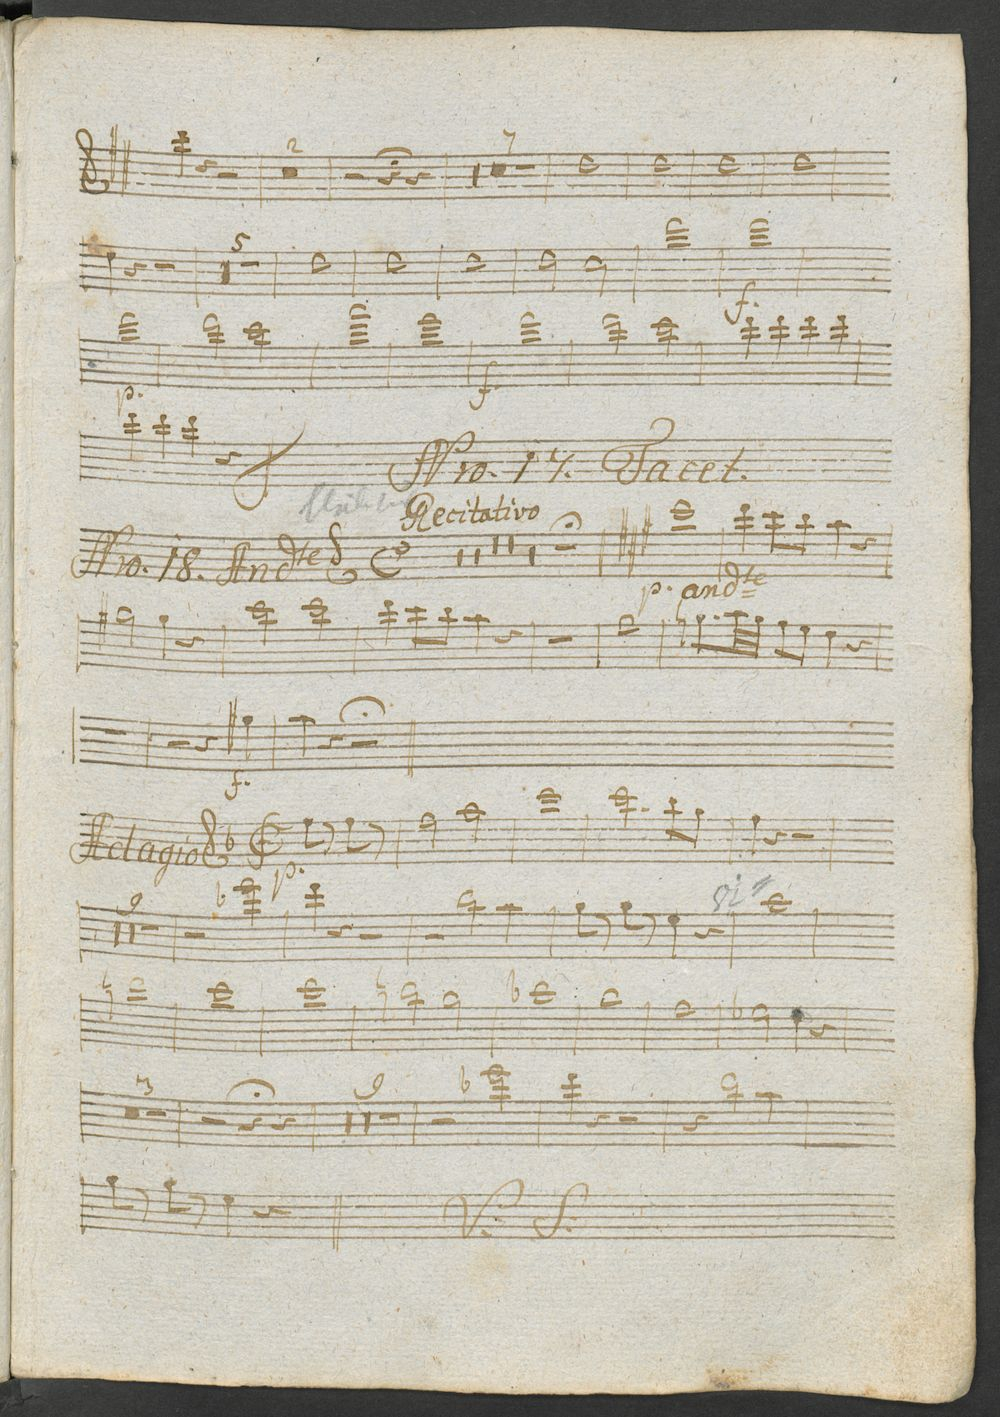 2 7
5
f.
p. f
Nro. 17. Tacet.
Recitativo
Nro. 18. Andte
p. andte
f.
Adagio
p.
9
3 9
V. S.